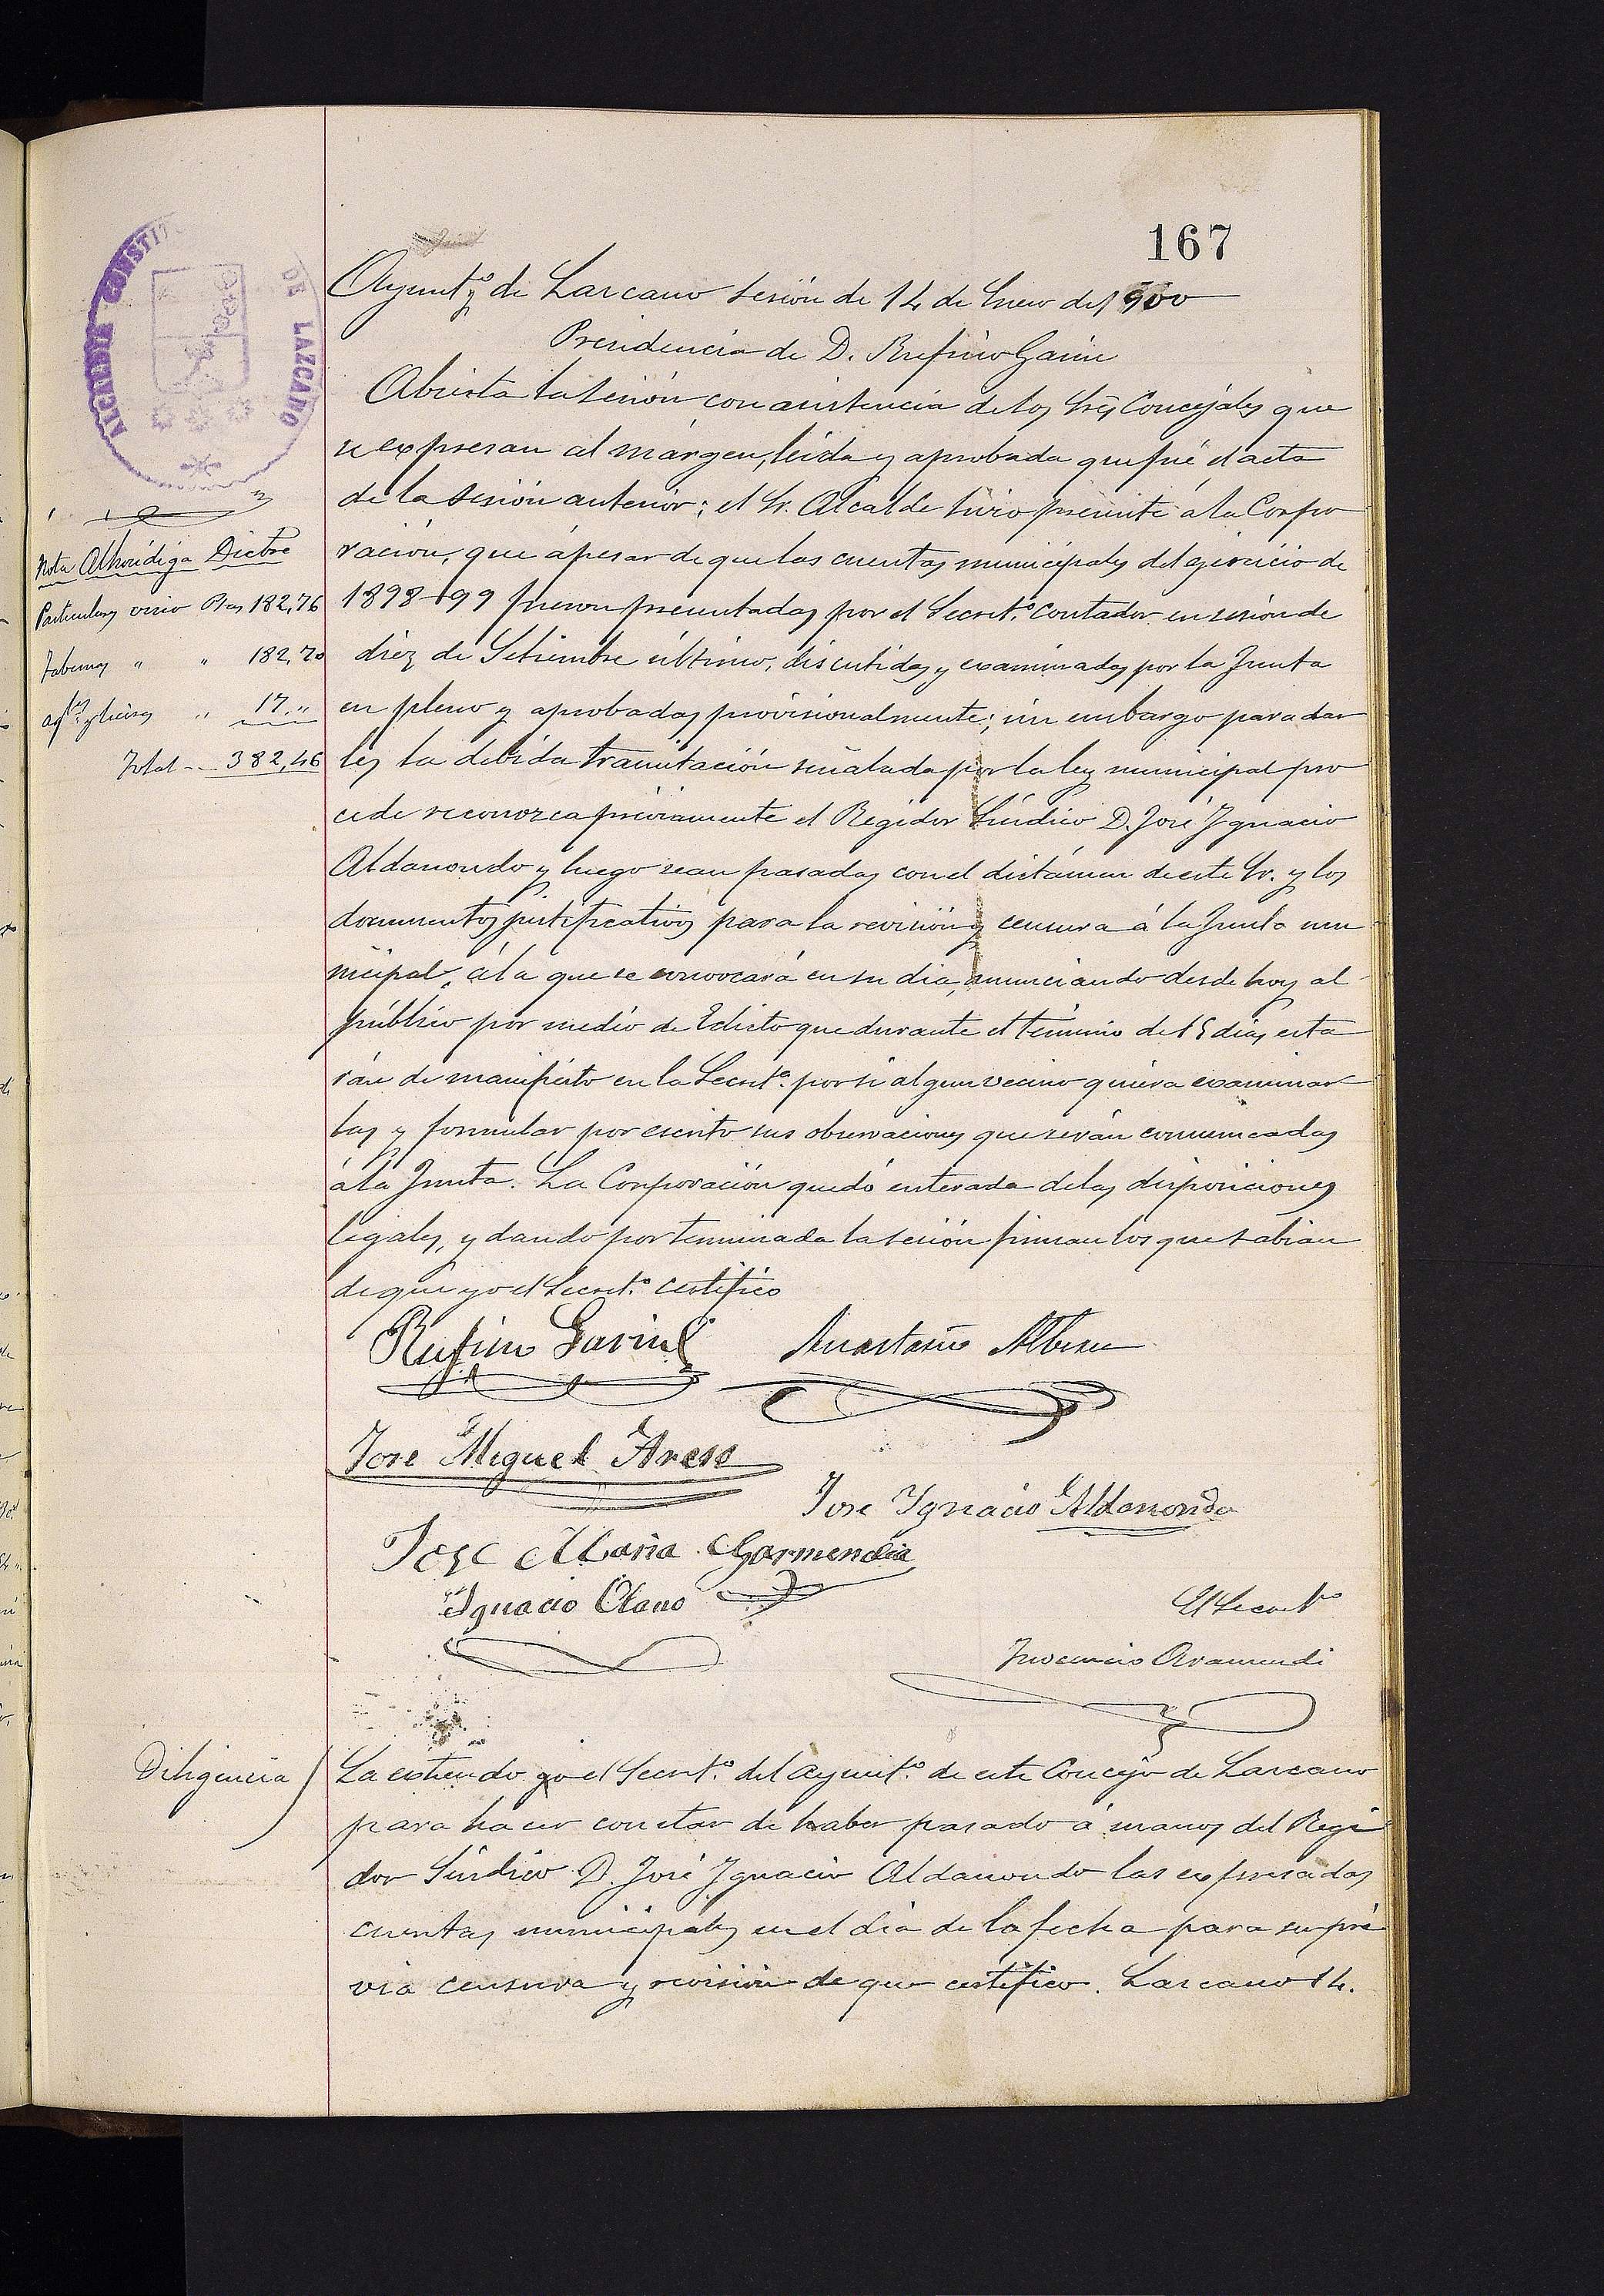 167
ALCALDIA CONSTIT DE LAZCANO
Ayuntº de Lazcano sesión de 14 de Enero de 1900
Presidencia de D. Rufino Garin
Abierta la sesión con asistencia de los Sres Concejales que
se expresan al márgen, leida y aprobada que fué el acta
de la sesión anterior; el Sr. Alcalde hizo presente á la Corpo
ración, que ápesar de que las cuentas municipales del ejercicio de
1898-99 fueron presentadas por el Secretº Contador en sesión de
diez de Setiembre último, discutidas y examinadas por la Junta
en pleno y aprobadas provisionalmente; sin embargo para dar
les la debida tramitación señalada por la ley municipal pro
cede reconozca préviamente el Regidor Síndico D. José Ignacio
Aldanondo y luego sean pasadas con el dictámen de este Sr. y los
documentos justificativos para la revisión y censura á la Junta mu
nicipal, á la que se convocará en su dia, anunciando desde hoy al
público por medio de Edicto que durante el término de 15 dias esta
rán de manifiesto en la Secretª por si algun vecino quiera examinar
las y formular por escrito sus observaciones que serán comunicadas
á la Junta. La Corporación quedó enterada de las disposiciones
legales, y dando por terminada la sesión firman los que sabian
de que yo el Secretº certifico
Nota Alhóndiga Dicbre
Particulares vino Ptas 182,76
Tabernas " " 182,70
y licores " 17,"
Total 382,46
Rufino Garin
Anastasio Alberu
Jose Miguel Areso
Jose Ignacio Aldanondo
Jose Maria Garmendia
Ignacio Olano
El Secretº
Inocencio Aramendi
Diligencia
La extiendo yo el Secretº del Ayuntº de este Concejo de Lazcano
para hacer constar de haber pasado á manos del Regi
dor Síndico D. José Ignacio Aldanondo las expresadas
cuentas municipales en el dia de la fecha para su pré
via censura y revisión de que certifico. Lazcano 14.